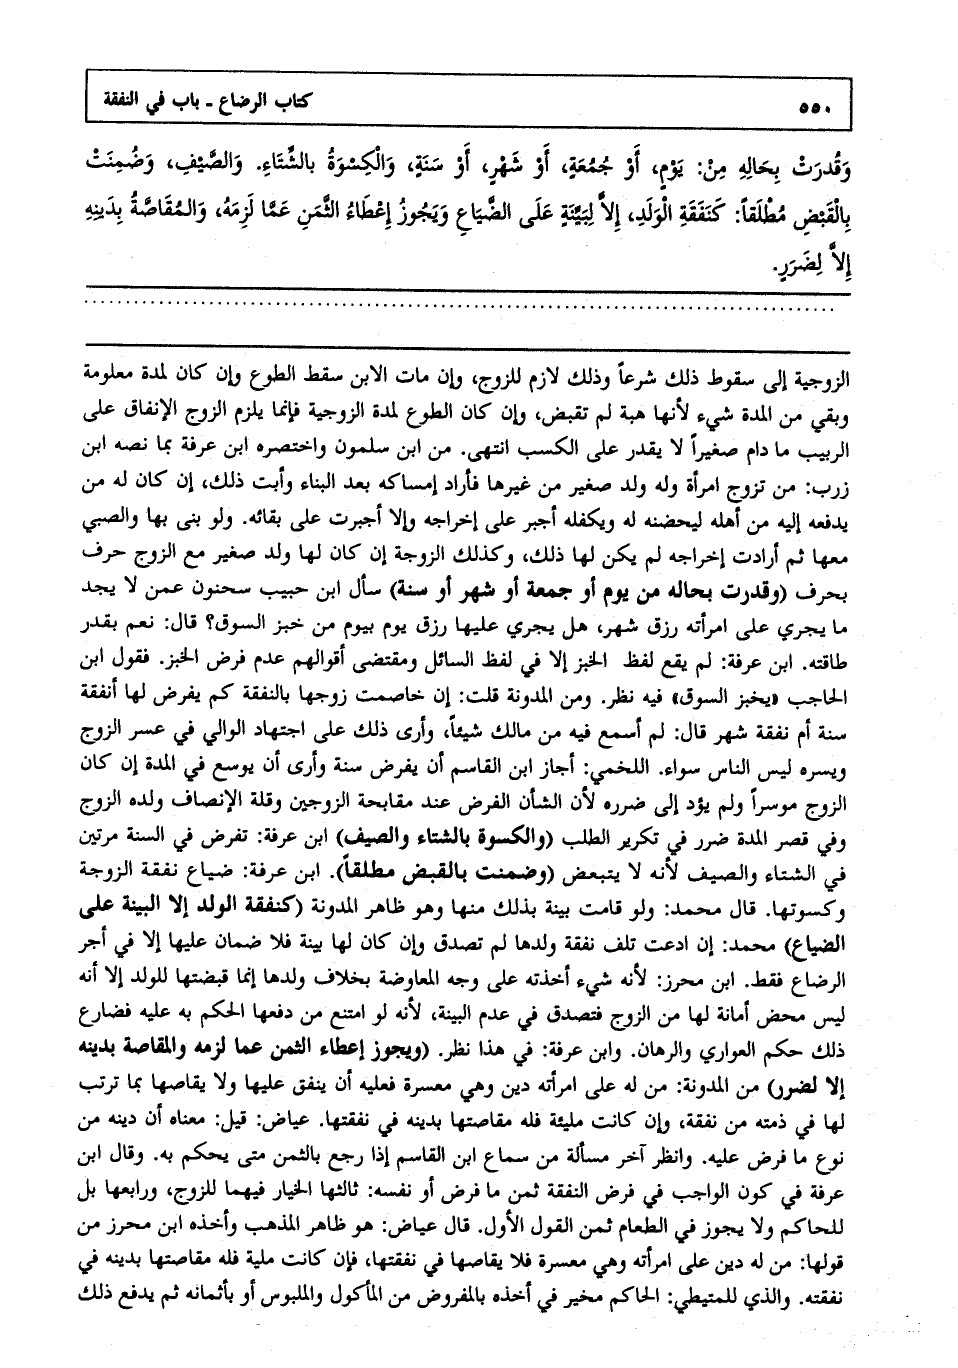 ٥٥٠
كتاب الرضاع ـ باب في النفقة
وَقُدرَتْ بِحَالِهِ مِنْ: يَوْمٍ، أَوْ جُمُعَةٍ، أَوْ شَهْرٍ، أَوْ سَنَةٍ، وَالْكِسْوَةُ بالشِّتَاءِ. وَالصَّيْفِ، وَضُمِنَتْ
بِالْقَبْضِ مُطْلَقاً: كَنَفَقَةِ الْوَلَدِ، إِلاَّ لِبَيِّنَةٍ عَلَى الضَّيَاعِ وَيَجُوزُ إِعْطَاءُ الثَّمَنِ عَمَّا لَزِمَهُ، وَالمُقَاصَّةُ بِدَينِهِ
إِلاَّ لِضَرَرٍ.
الزوجية إلى سقوط ذلك شرعاً وذلك لازم للزوج، وإن مات الابن سقط الطوع وإن كان لمدة معلومة
وبقي من المدة شيء لأنها هبة لم تقبض، وإن كان الطوع لمدة الزوجية فإنما يلزم الزوج الإنفاق على
الربيب ما دام صغيراً لا يقدر على الكسب انتهى. من ابن سلمون واختصره ابن عرفة بما نصه ابن
زرب: من تزوج امرأة وله ولد صغير من غيرها فأراد إمساكه بعد البناء وأبت ذلك، إن كان له من
يدفعه إليه من أهله ليحضنه له ويكفله أجبر على إخراجه وإلا أجبرت على بقائه. ولو بنى بها والصبي
معها ثم أرادت إخراجه لم يكن لها ذلك، وكذلك الزوجة إن كان لها ولد صغير مع الزوج حرف
بحرف (وقدرت بحاله من يوم أو جمعة أو شهر أو سنة) سأل ابن حبيب سحنون عمن لا يجد
ما يجري على امرأته رزق شهر، هل يجري عليها رزق يوم بيوم من خبز السوق؟ قال: نعم بقدر
طاقته. ابن عرفة: لم يقع لفظ الخبز إلا في لفظ السائل ومقتضى أقوالهم عدم فرض الخبز. فقول ابن
الحاجب «يخبز السوق» فيه نظر. ومن المدونة قلت: إن خاصمت زوجها بالنفقة كم يفرض لها أنفقة
سنة أم نفقة شهر قال: لم أسمع فيه من مالك شيئاً، وأرى ذلك على اجتهاد الوالي في عسر الزوج
ويسره ليس الناس سواء. اللخمي: أجاز ابن القاسم أن يفرض سنة وأرى أن يوسع في المدة إن كان
الزوج موسراً ولم يؤد إلى ضرره لأن الشأن الفرض عند مقابحة الزوجين وقلة الإنصاف ولده الزوج
وفي قصر المدة ضرر في تكرير الطلب (والكسوة بالشتاء والصيف) ابن عرفة: تفرض في السنة مرتين
في الشتاء والصيف لأنه لا يتبعض (وضمنت بالقبض مطلقاً). ابن عرفة: ضياع نفقة الزوجة
وكسوتها. قال محمد: ولو قامت بينة بذلك منها وهو ظاهر المدونة (كنفقة الولد إلا البينة على
الضياع) محمد: إن ادعت تلف نفقة ولدها لم تصدق وإن كان لها بينة فلا ضمان عليها إلا في أجر
الرضاع فقط. ابن محرز: لأنه شيء أخذته على وجه المعاوضة بخلاف ولدها إنما قبضتها للولد إلا أنه
ليس محض أمانة لها من الزوج فتصدق في عدم البينة، لأنه لو امتنع من دفعها الحكم به عليه فضارع
ذلك حكم العواري والرهان. وابن عرفة: في هذا نظر. (ويجوز إعطاء الثمن عما لزمه والمقاصة بدينه
إلا لضرر) من المدونة: من له على امرأته دين وهي معسرة فعليه أن ينفق عليها ولا يقاصها بما ترتب
لها في ذمته من نفقة، وإن كانت مليئة فله مقاصتها بدينه في نفقتها. عياض: قيل: معناه أن دينه من
نوع ما فرض عليه. وانظر آخر مسألة من سماع ابن القاسم إذا رجع بالثمن متى يحكم به. وقال ابن
عرفة في كون الواجب في فرض النفقة ثمن ما فرض أو نفسه: ثالثها الخيار فيهما للزوج، ورابعها بل
للحاكم ولا يجوز في الطعام ثمن القول الأول. قال عياض: هو ظاهر المذهب وأخذه ابن محرز من
قولها: من له دين على امرأته وهي معسرة فلا يقاصها في نفقتها، فإن كانت ملية فله مقاصتها بدينه في
نفقته. والذي للمتيطي: الحاكم مخير في أخذه بالمفروض من المأكول والملبوس أو بأثمانه ثم يدفع ذلك